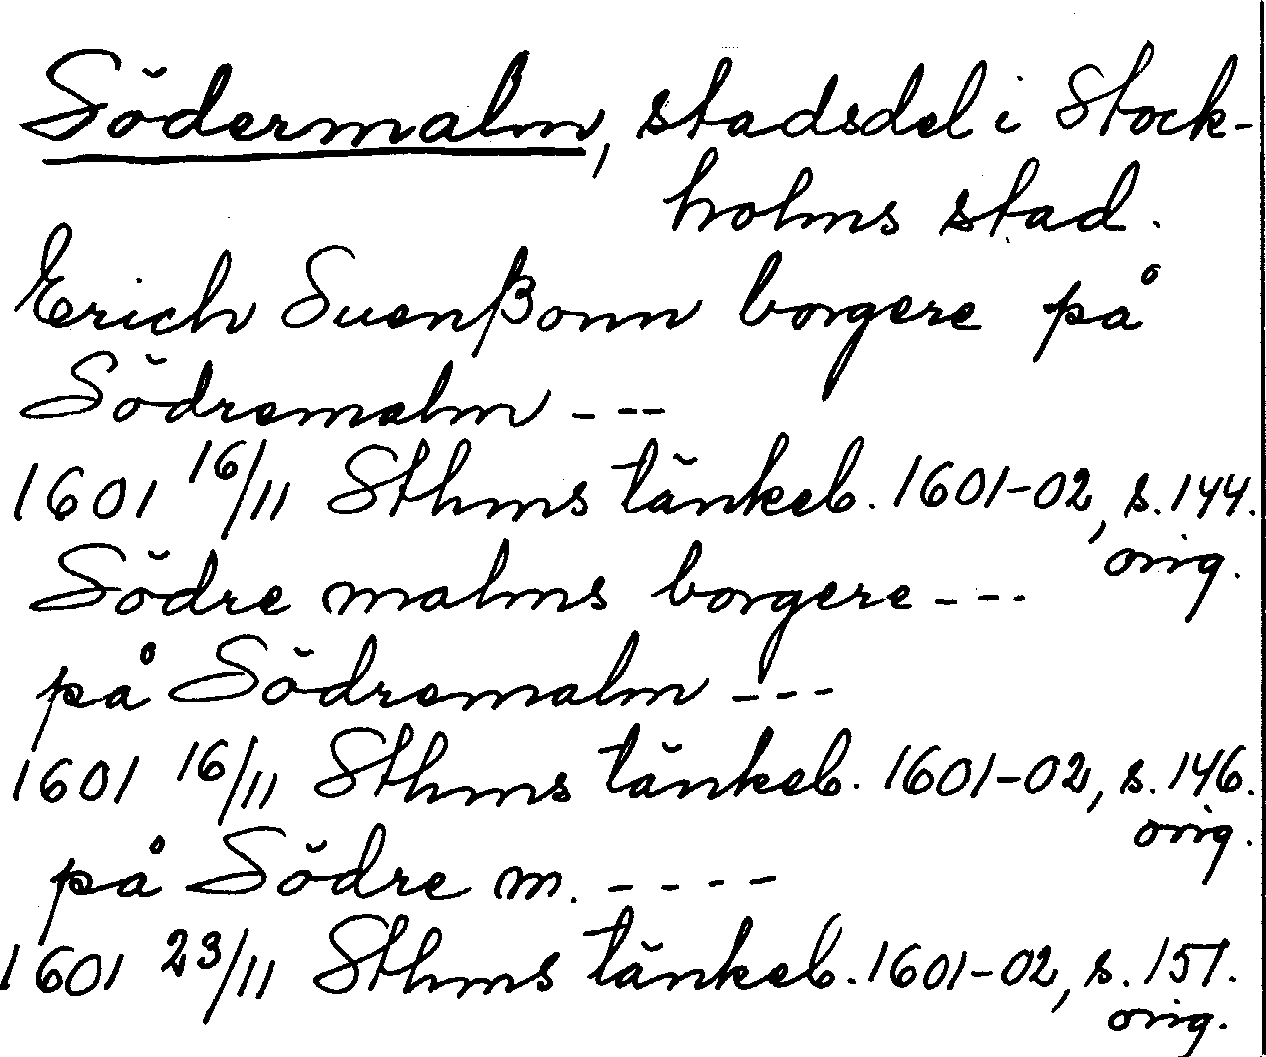 Södermalm, stadsdel i Stock-
holms stad.
Erich Suenßonn borgere på
Södremalm ---
1601 16/11 Sthms tänkeb. 1601-02, s. 144.
orig.
Södre malms borgere ---
på Södremalm ---
1601 16/11 Sthms tänkeb. 1601-02, s. 146.
orig.
på Södre m. ----
1601 23/11 Sthms tänkeb. 1601-02, s. 151.
orig.